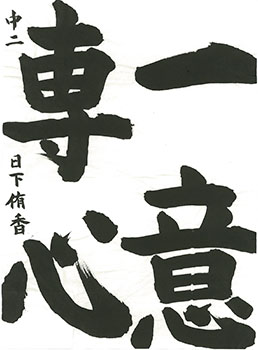 一意
専心
中二 日下侑香